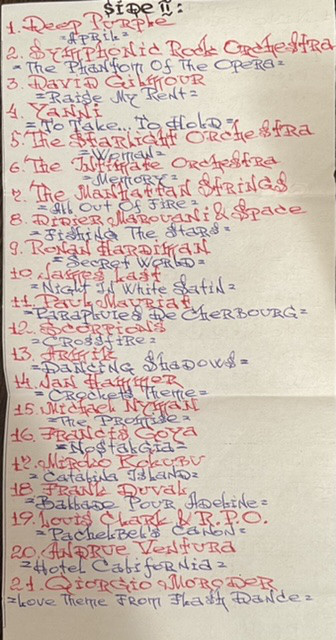 Side II:
1. Deep Purple
=April=
2. Symphonic Rock Orchestra
=The Phantom Of The Opera=
3. David Gilmour
=Raise My Rent=
4. Yanni
=To Take... To Hold=
5. The Starlight Orchestra
=Woman=
6. The Intimate Orchestra
=Memory=
7. The Manhattan Strings
=All Out Of Fire=
8. Didier Marouani & Space
=Fishing The Stars=
9. Ronan Hardiman
=Secret World=
10. James Last
=Night In White Satin=
11. Paul Mauriat
=Parapluies De Cherbourg=
12. Scorpions
=Crossfire=
13. Armik
=Dancing Shadows=
14. Jan Hammer
=Crockets Theme=
15. Michael Nyman
=The Promise=
16. Francis Goya
=Nostalgia=
17. Mirdko Kokubu
=Catalina Island=
18. Frank Duval
=Ballade Pour Adeline=
19. Louis Clark & R.P.O.
=Pachelbel's Canon=
20. Andrue Ventura
=Hotel California=
21. Giorgio Moroder
=Love Theme From Flash Dance=